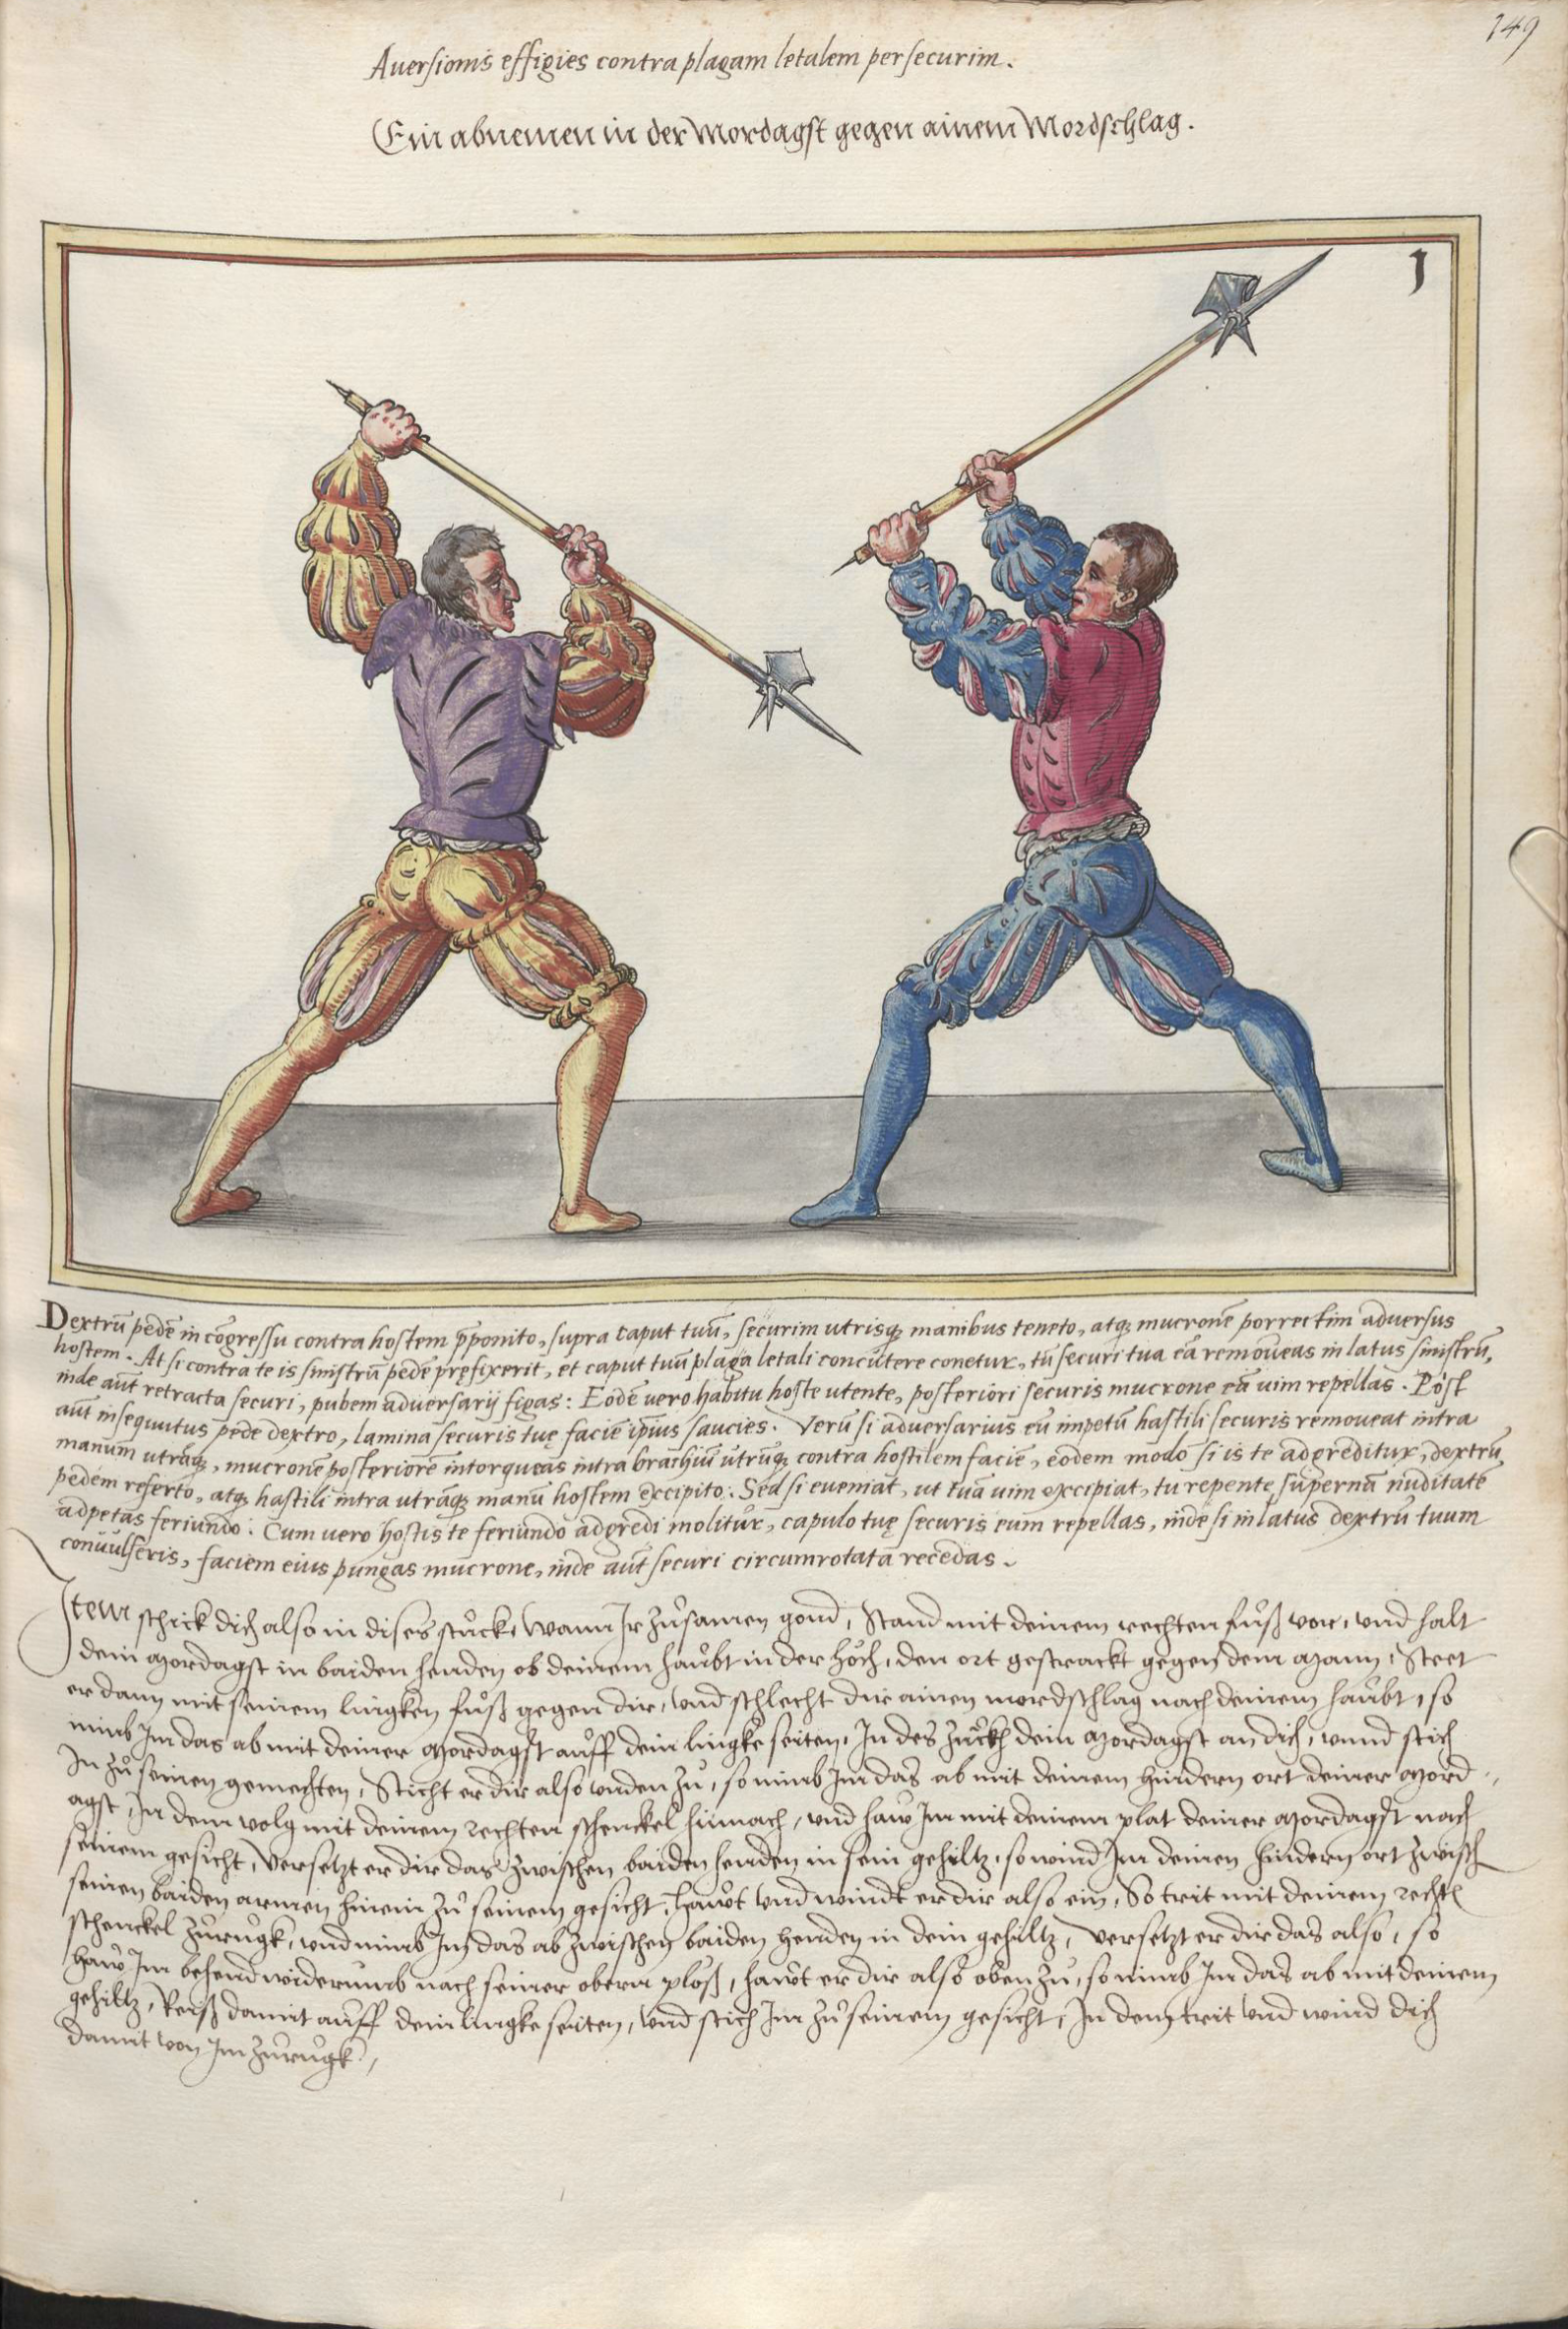 149
Aversionis effigies contra plagam letalem per securim.
Ein abnemen in der Mordagst gegen ainem Mordschlag.
1
Dextrū pedē in cōgressu contra hostem p̄ponito, supra caput tuū, securim utrisq; manibus teneto, atq; mucronē porrectim adversus
hostem. At si contra te is sinistrū pedē pręfixerit, et caput tuū plaga letali concutere conetur, tū securi tua eā removeas in latus sinistrū,
inde aūt retracta securi, pubem adversarij figas: Eodē vero habitu hoste utente, posteriori securis mucrone eā vim repellas. Post
aūt insequutus pede dextro, lamina securis tuę faciē ipius saucies. Verū si adversarius eū impetū hastili securis removeat intra
manum utrāq;, mucronē posteriorē intorqueas intra brachiū utrūq; contra hostilem faciē, eodem modo si is te adgreditur, dextrū
pedem referto, atq; hastili intra utrāq; manū hostem excipito. Sed si eveniat, ut tuā vim excipiat, tu repente supernā nuditatē
adpetas feriundo. Cum vero hostis te feriundo adgredi molitur, capulo tuę securis eum repellas, inde si in latus dextrū tuum
convulseris, faciem eius pungas mucrone, inde aūt securi circumrotata recedas.
Item schick dich also in dises stuck, wann Ir zůsamen gond, Stand mit deinem rechten fůß vor, und halt
dein Mordagst in baiden henden ob deinem haubt in der höch, den ort gestrackt gegen dem Mann, Steet
er dann mit seinem lingken fůß gegen dir, und schlecht dir ainen mordschlag nach deinem haubt, so
nimb Im das ab mit deiner Mordagst auff dein lingke seiten, In des zuckh dein Mordagst an dich, unnd stich
Im zů seinen gemechten, Sticht er dir also unden zů, so nimb Im das ab mit deinem hindern ort deiner Mord
agst, In dem volg mit deinem rechten schenckel hinnach, und haw Im mit deinem plat deiner Mordagst nach
seinem gesicht, Versetzt er dir das zwischen baiden henden in sein gehiltz, so wind Im deinen hindern ort zwisch
seinen baiden armen hinein zů seinem gesicht, Hawt und windt er dir also ein, So trit mit deinem recht
schenckel zůrugk, und nimb Im das ab zwischen baiden henden in dein gehiltz, Versetzt er dir das also, so
haw Im behend widerumb nach seiner obern plöß, hawt er dir also oben zů, so nimb Im das ab mit deinem
gehiltz, Reiß damit auff dein lingke seiten, und stich Im zů seinem gesicht, In dem trit und wind dich
damit von Im zůrugk.